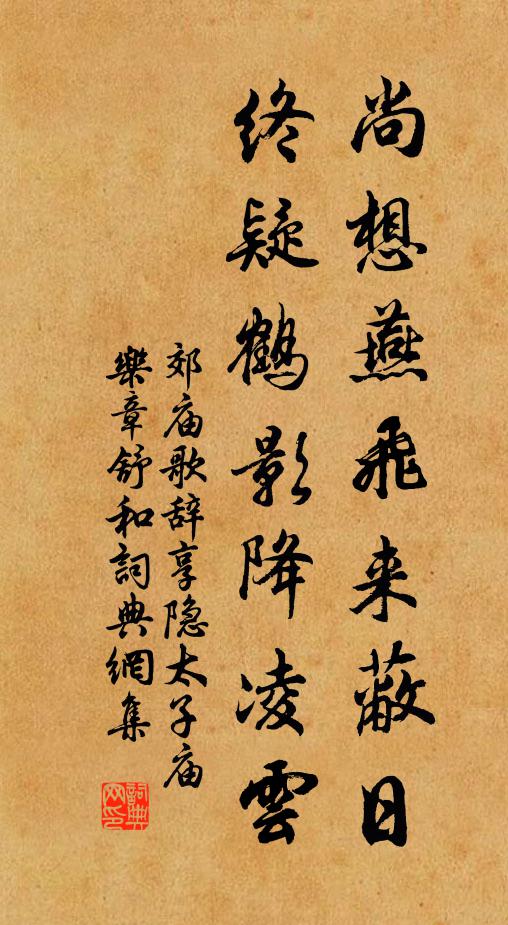 尚想燕飛来蔽日
终疑鹤影降凌雲
郊庙歌辞享隐太子庙
樂章舒和詞典網集
詞典网印